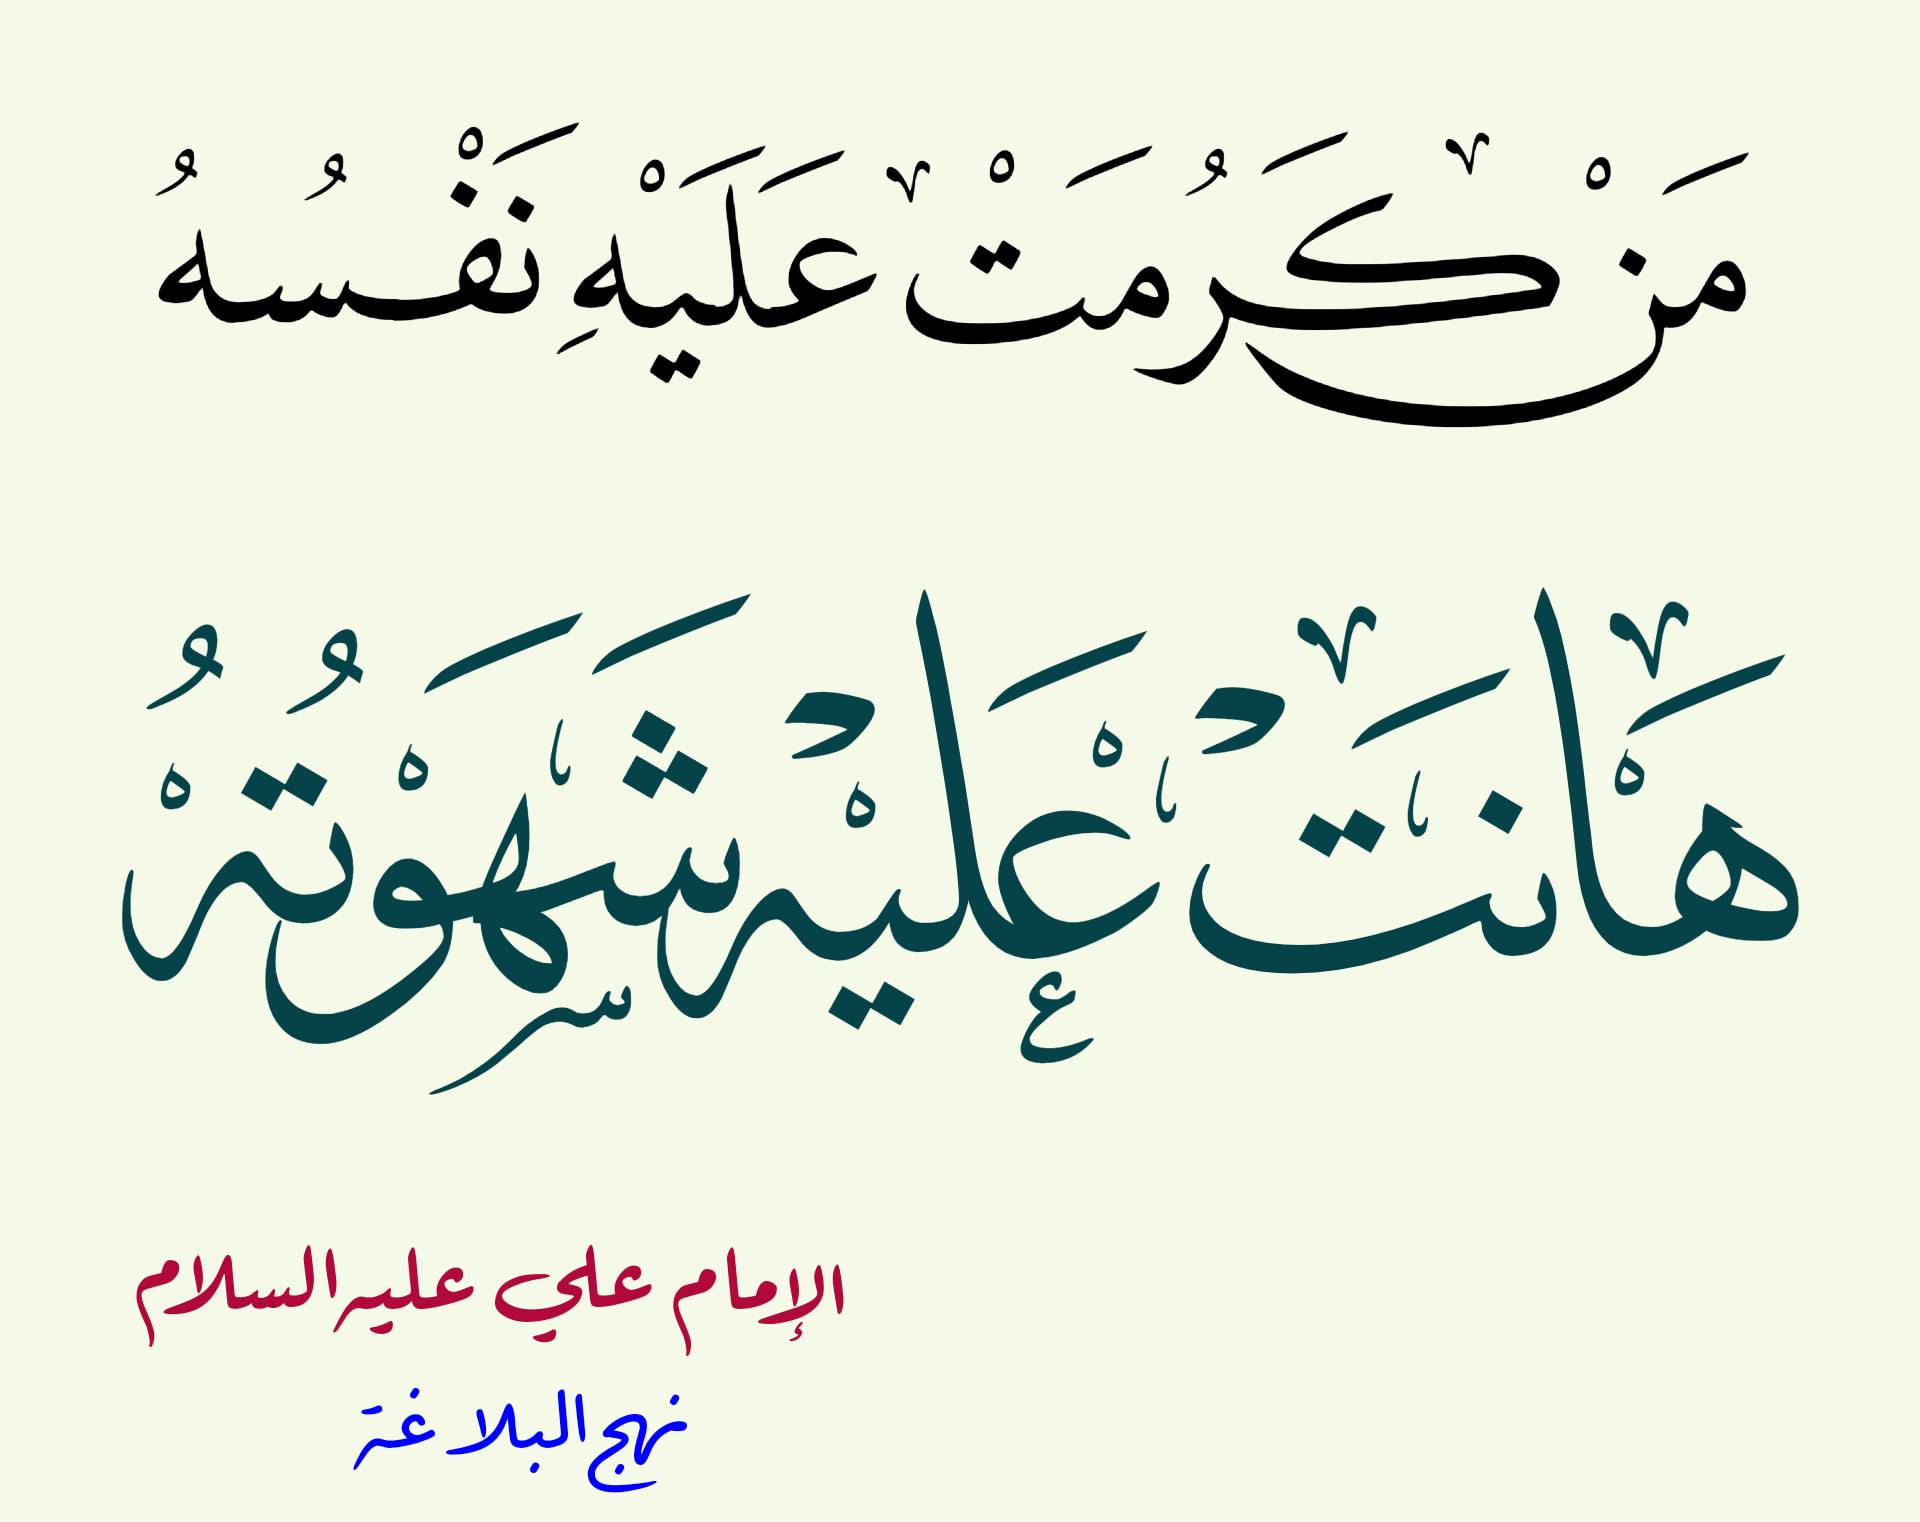 مَنْ كَرُمَتْ عَلَيْهِ نَفْسُهُ
هَانَتْ عَلَيْهِ شَهْوَتُهُ
الإمام علي عليه السلام
نهج البلاغة